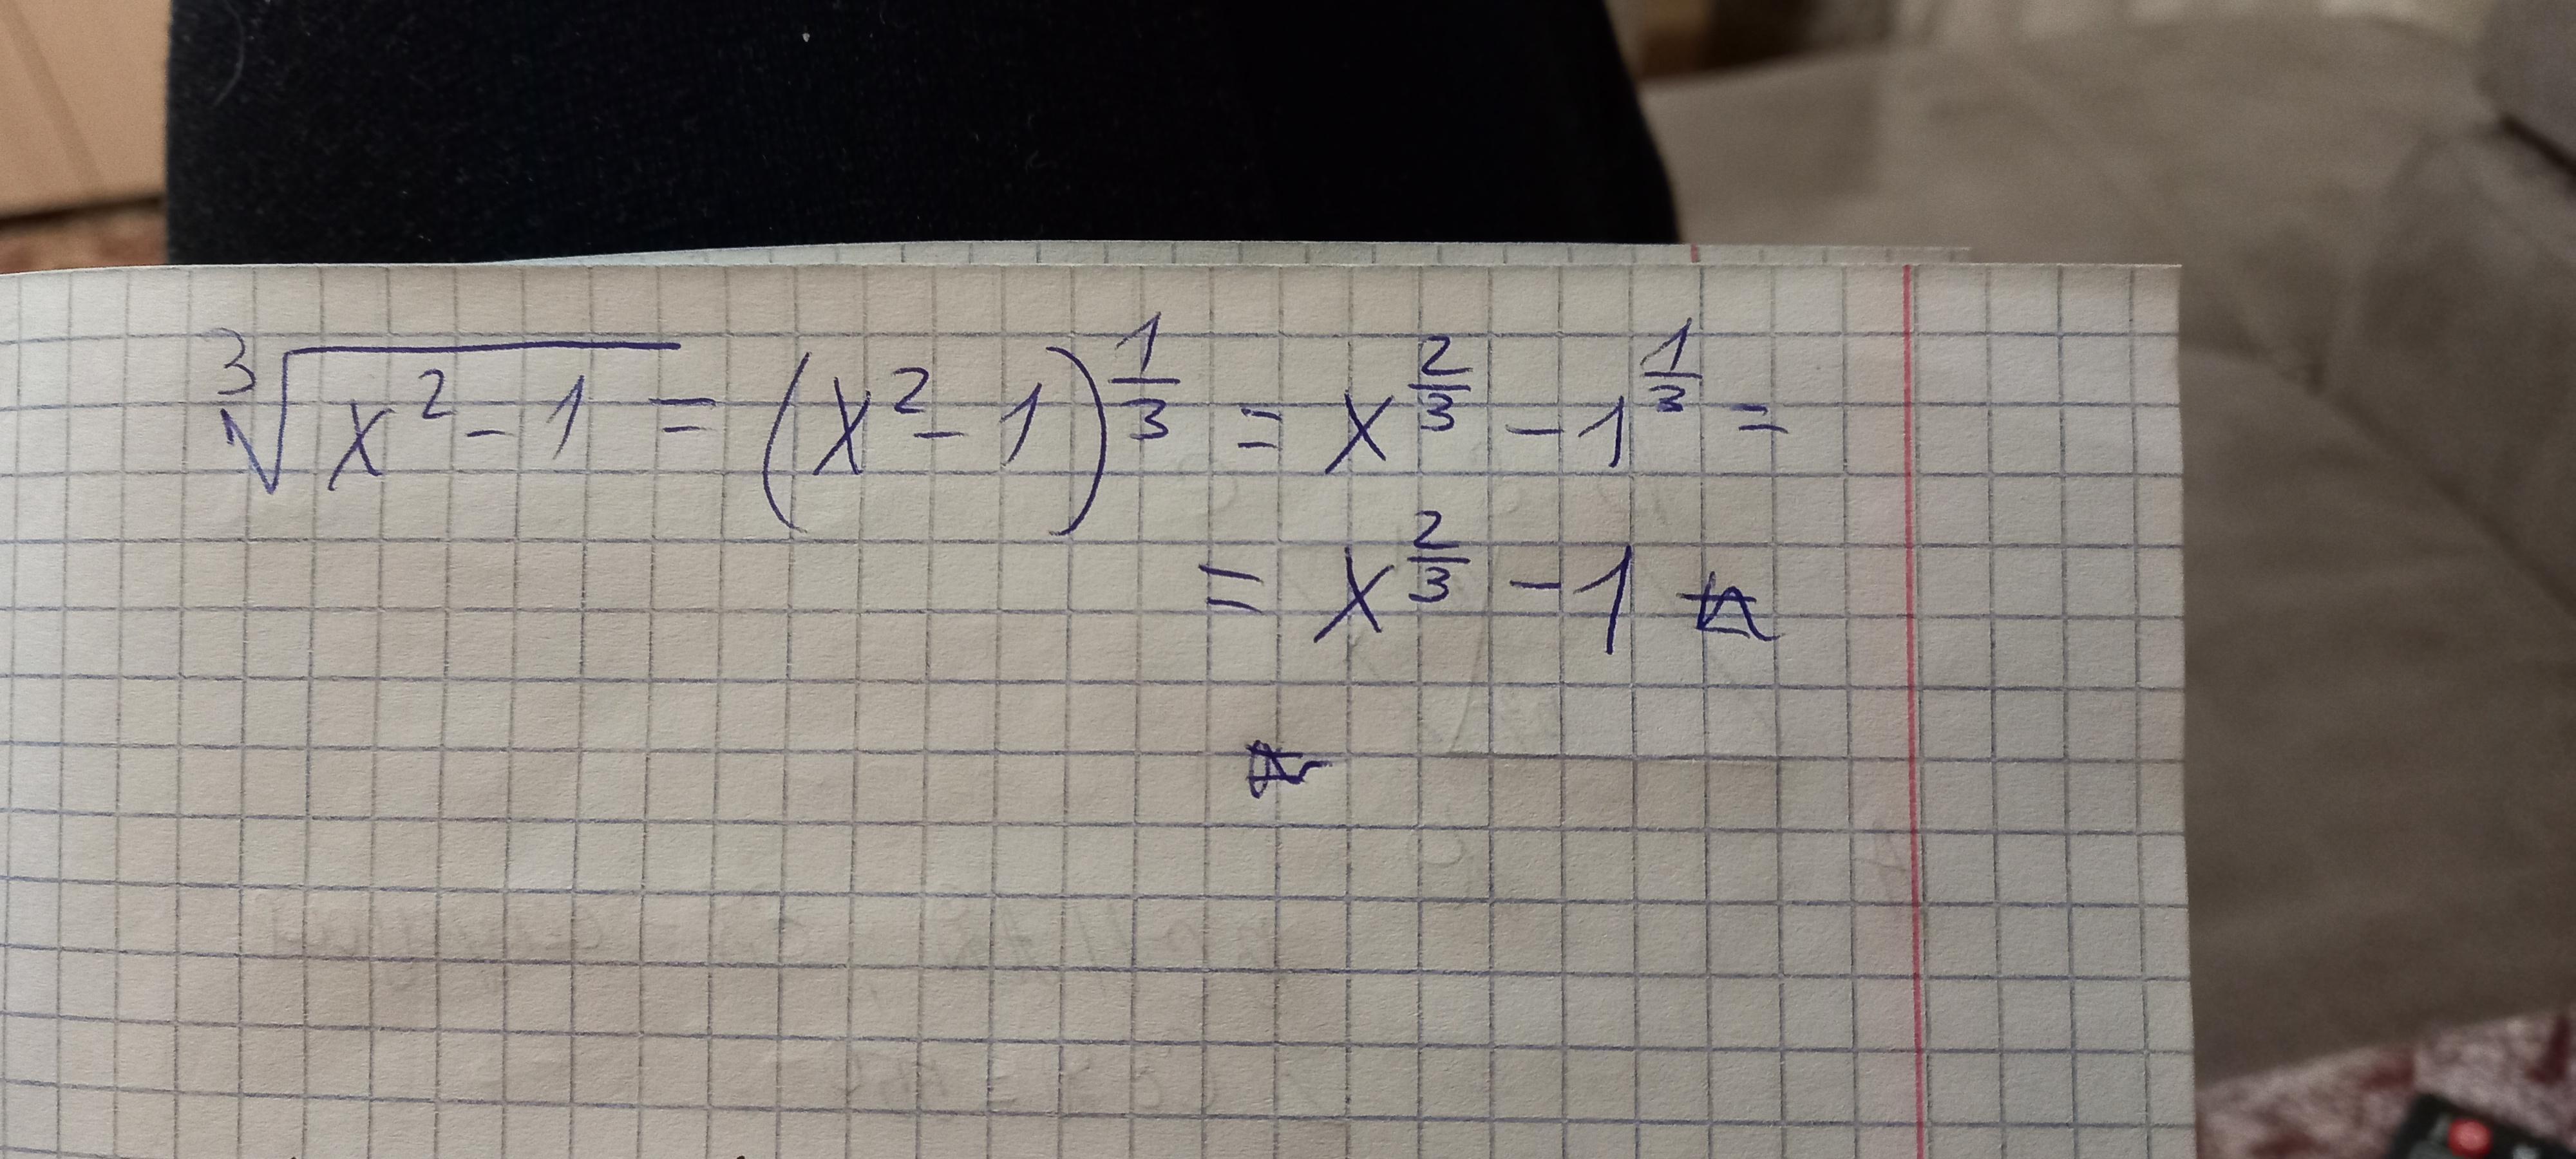 ∛(x² - 1) = (x² - 1)^(1/3) = x^(2/3) - 1^(1/3) =
= x^(2/3) - 1